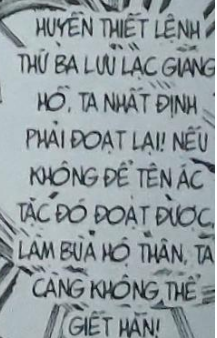 HUYỀN THIẾT LỆNH
THỨ BA LƯU LẠC GIANG
HỒ, TA NHẤT ĐỊNH
PHẢI ĐOẠT LẠI! NẾU
KHÔNG ĐỂ TÊN ÁC
TẶC ĐÓ ĐOẠT ĐƯỢC,
LÀM BÙA HỘ THÂN, TA
CÀNG KHÔNG THỂ
GIẾT HẮN!